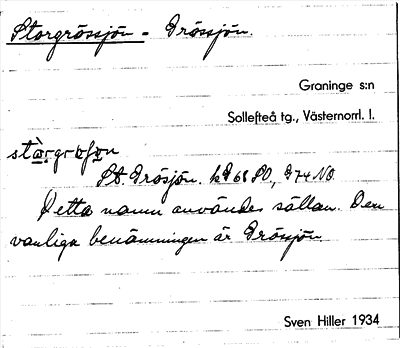 Storgrössjön - Grössjön.
Graninge s:n
Sollefteå tg., Västernorrl. l.
St. Grösjön. kG68SO, G74NO.
Detta namn användes sällan. Den
vanliga benämningen är Grössjön.
Sven Hiller 1934